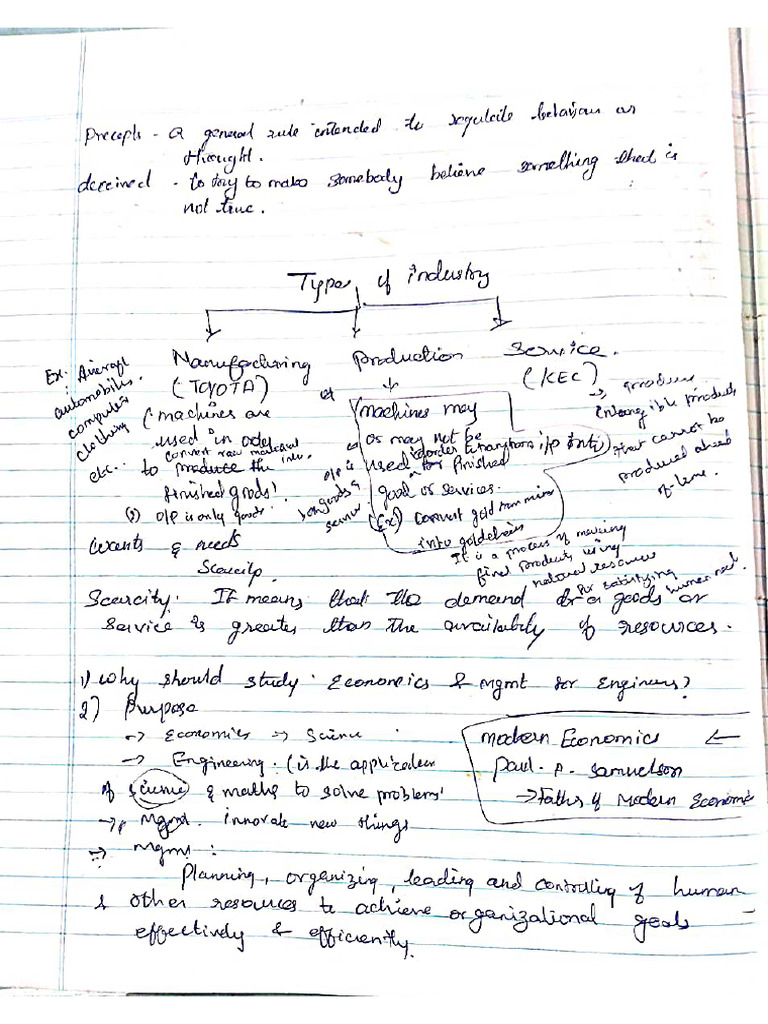 Precepts - a general rule intended to regulate behaviour or
thought.
deceived - to try to make somebody believe something that is
not true.
Types of industry
Manufacturing
(TOYOTA)
(machines are
used in order
to produce the
convert raw material into
finished goods)
(2) O/P is only goods.
Ex: Aircraft
automobiles.
computers
clothing
etc..
Production
machines may
or may not be
used in order to transform i/p into
finished
good or services.
(Ex) convert gold from mine
into goldchain
O/P is
goods &
service
It is a process of making
final products using
natural resources
for satisfying
human need.
Service.
(KEC)
→ produces
intangible products
that cannot be
produced ahead
of time.
wants & needs
Scarcity.
Scarcity: It means that the demand for a goods or
service is greater than the availability of resources.
1) Why should study Economics & Mgmt for Engineers?
2) Purpose
→ Economics → Science
→ Engineering. (is the application
of science & maths to solve problems)
→ Mgmt. innovate new things
→ Mgmt :
Planning, organizing, leading and controlling of human
& other resources to achieve organizational goals
effectively & efficiently.
Modern Economics ←
Paul. A. Samuelson
→ Father of Modern Economics